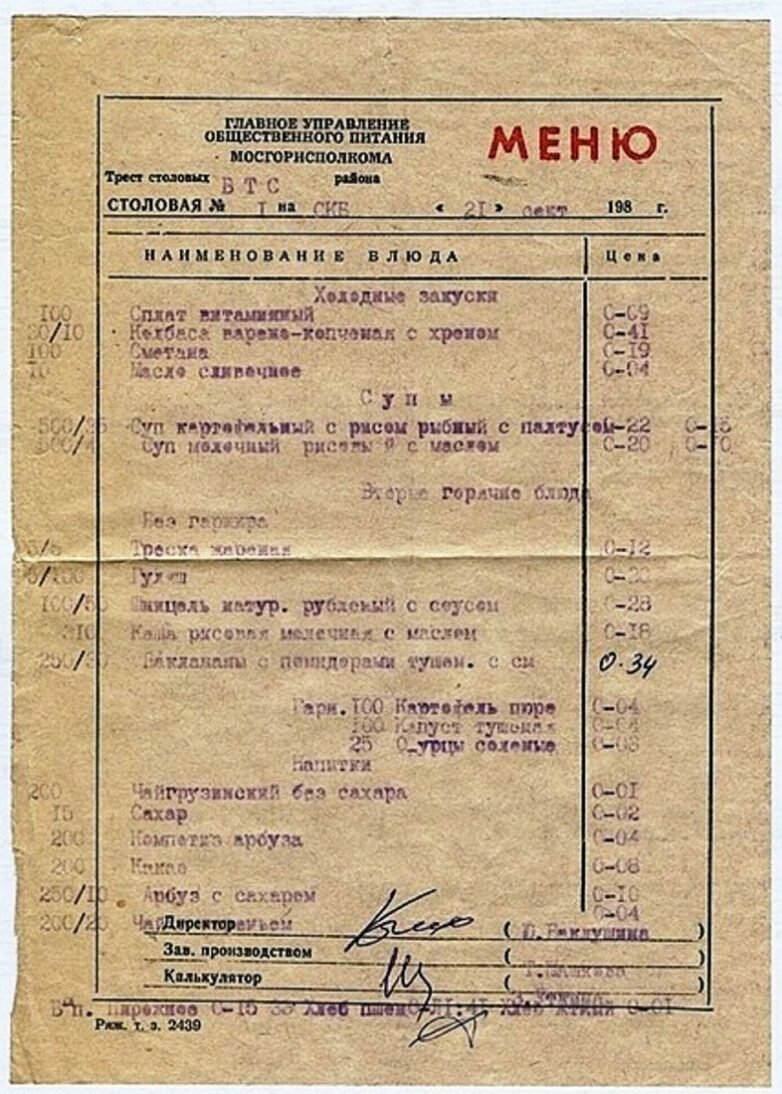 ГЛАВНОЕ УПРАВЛЕНИЕ
ОБЩЕСТВЕННОГО ПИТАНИЯ
МОСГОРИСПОЛКОМА
МЕНЮ
Трест столовых ВТС района
СТОЛОВАЯ № I на СКБ « 21 » сент 198 г.
НАИМЕНОВАНИЕ БЛЮДА Цена
Холодные закуски
100 Сплат витаминный 0-09
/10 Колбаса варено-копченая с хреном 0-41
100 Сметана 0-19
10 Масло сливочное 0-04
Супы
500/ Суп картофельный с рисом рыбный с палтусом 0-22 0-
Суп молочный рисовый с маслом 0-20 0-10
Вторые горячие блюда
Без гарнира
Треска жареная 0-12
Гуляш
100/50 Шницель натур. рубленый с соусом 0-28
210 Каша рисовая молочная с маслом 0-18
250/ Баклажаны с помидорами тушен. с см 0-34
Гарн. 100 Картофель пюре 0-04
100 Капуст тушеная 0-04
25 О урцы соленые 0-03
Напитки
200 Чайгрузинский без сахара 0-01
15 Сахар 0-02
200 Компотиз арбуза 0-04
200 Какао 0-08
250/10 Арбуз с сахаром 0-10
200/20 Чай 0-04
Директор ( Ю.Баклушина )
Зав. производством ( Г.Машкова )
Калькулятор ( )
Б п. Пирожное 0-15 33 Хлеб пшен 0-01
Ряж. т. з. 2439